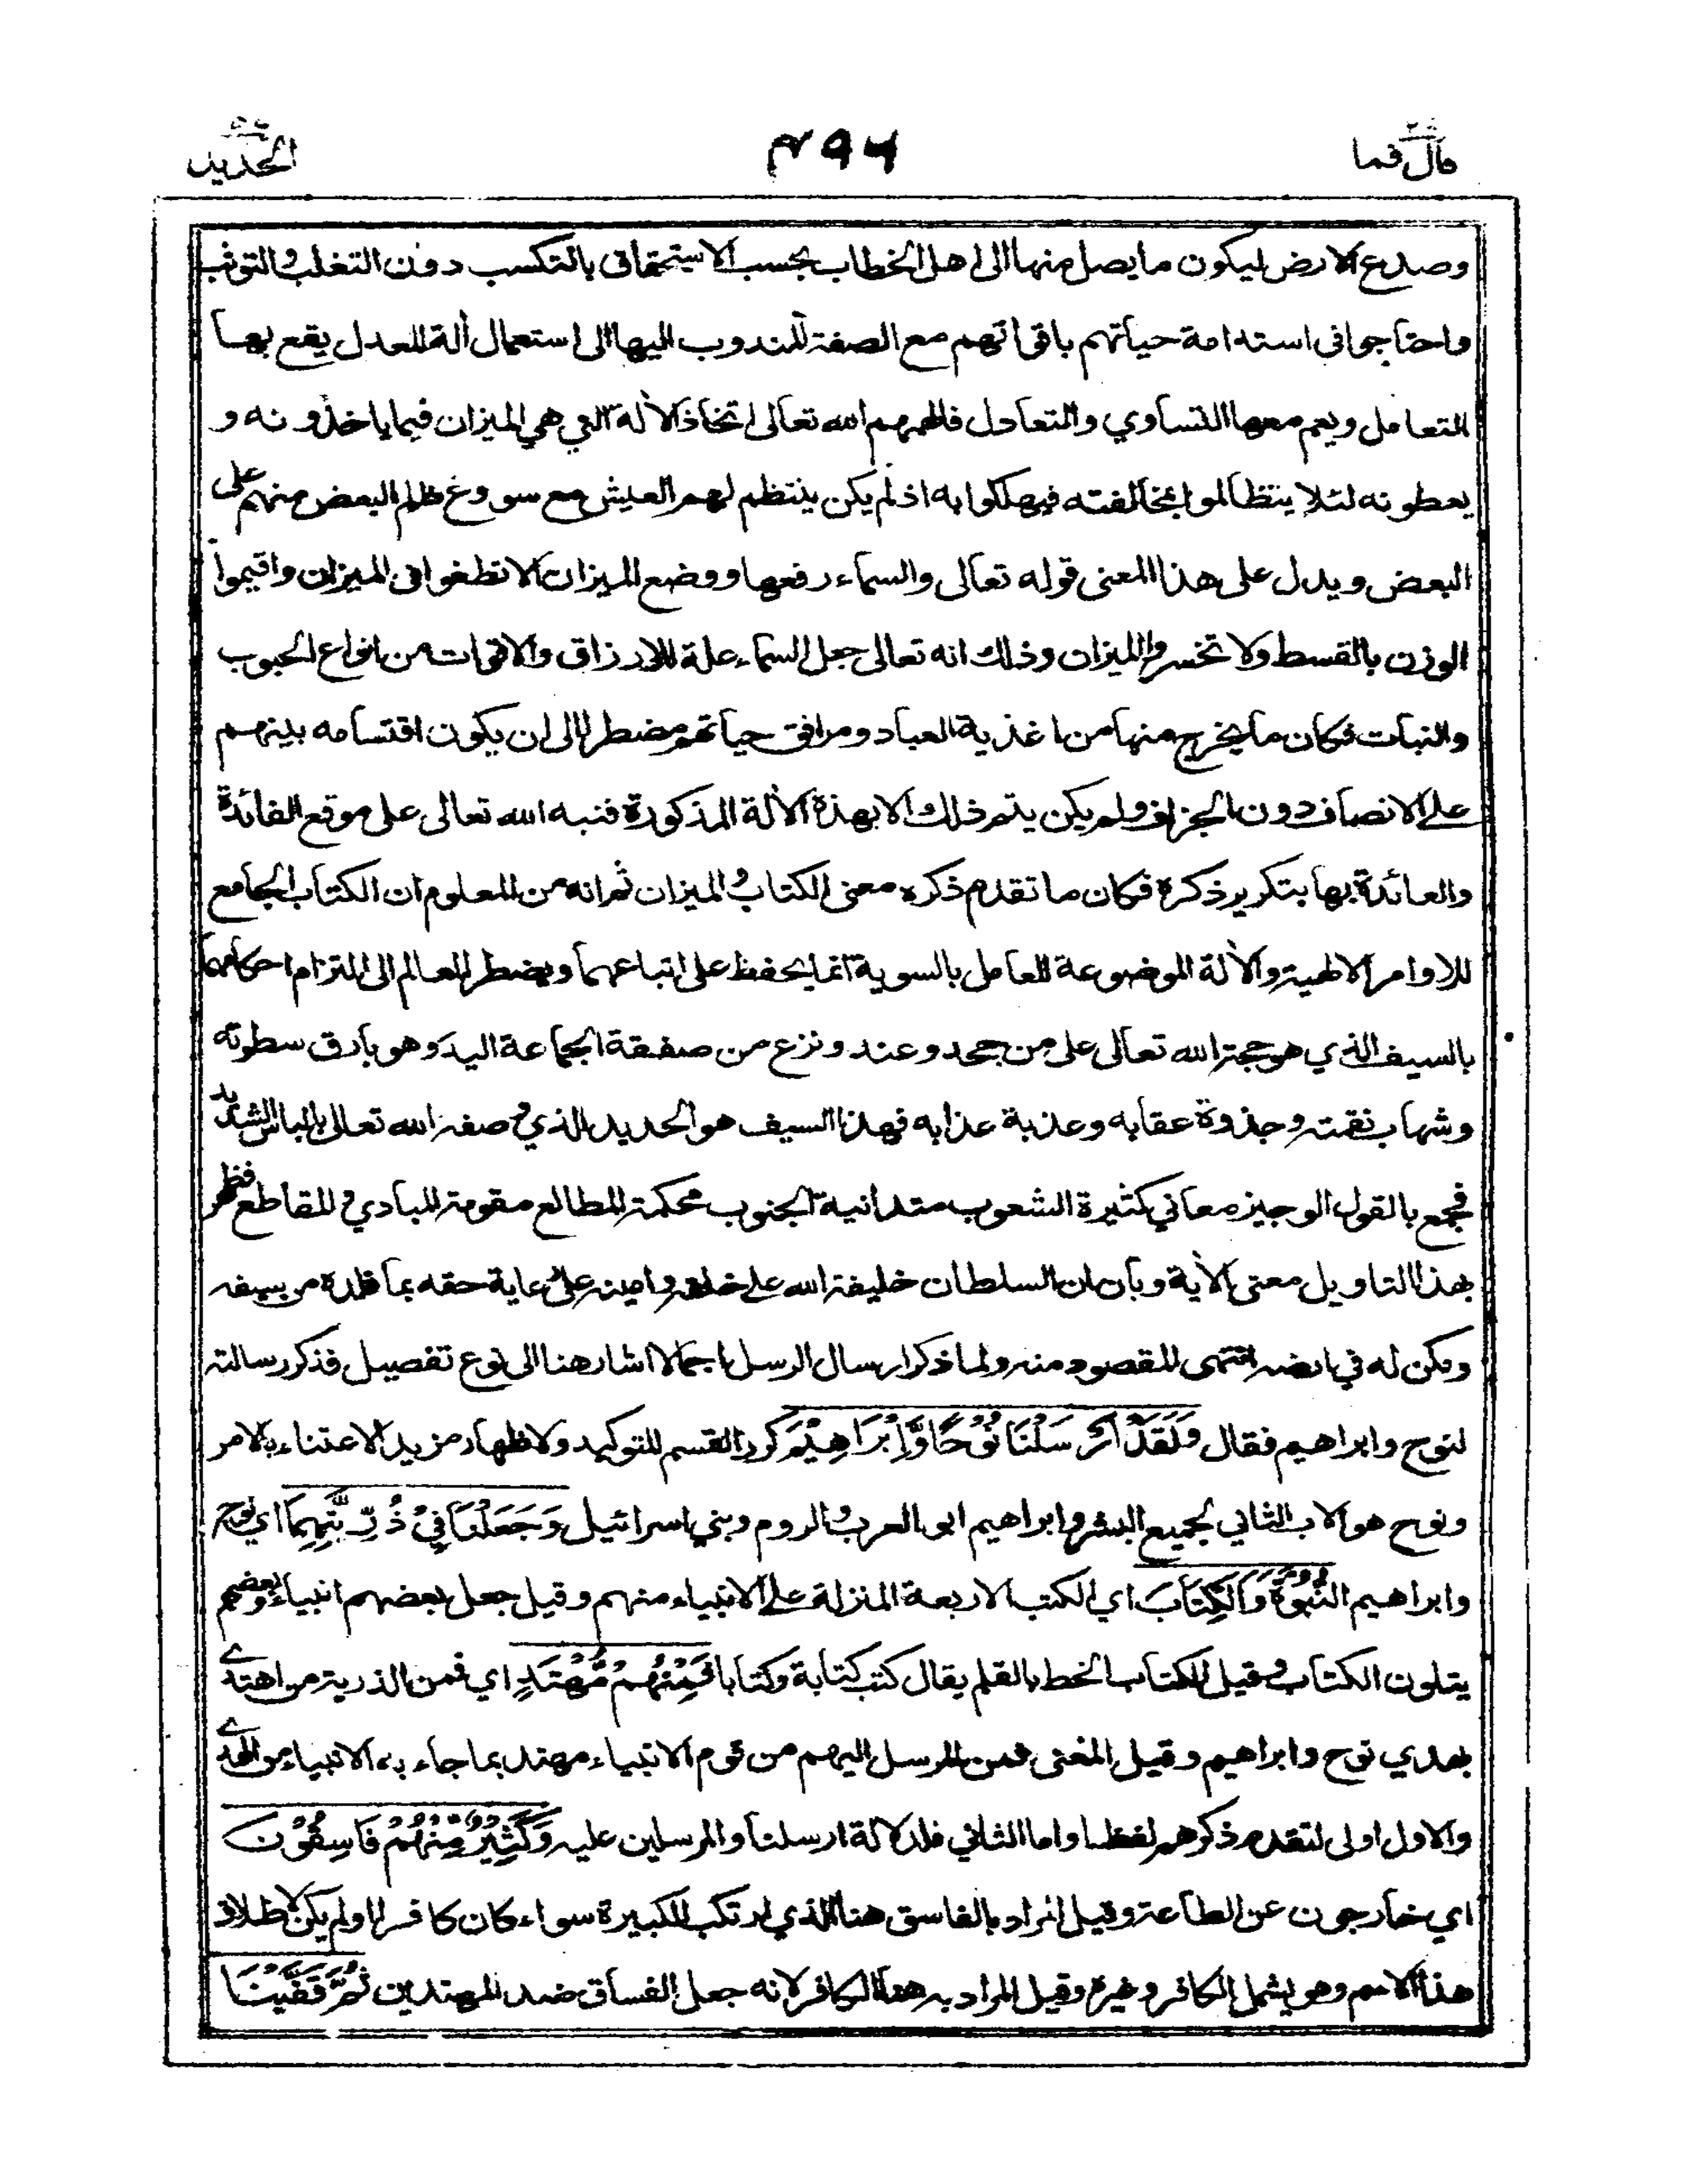 قال فما
٤٩٦
الحديد
وصدع الارض ليكون ما يصل منها الى اهل الخطاب بحسب الاستحقاق بالتكسب دون التغلب والتوثب
واحتاجوا فى استدامة حياتهم باقواتهم مع الصفة المندوب اليها الى استعمال ألة للعدل يقع بها
التعامل ويعم معها التساوي والتعادل فالهمهم الله تعالى اتخاذ الألة التي هي الميزان فيما ياخذونه و
يعطونه لئلا يتظالموا بمخالفته فيهلكوا به اذ لم يكن ينتظم لهم العيش مع سووغ ظلم البعض منهم على
البعض ويدل على هذا المعنى قوله تعالى والسماء رفعها ووضع الميزان الا تطغوا فى الميزان واقيموا
الوزن بالقسط ولا تخسروا الميزان وذلك انه تعالى جعل السماء علة للارزاق والاقوات من انواع الحبوب
والنبات فكان ما يخرج منها من اغذية العباد ومرافق حياتهم مضطرا الى ان يكون اقتسامه بينهم
على الانصاف دون الجزاف ولم يكن يتم ذلك الا بهذة الألة المذكورة فنبه الله تعالى على موقع الفائدة
والعائدة بها بتكرير ذكرة فكان ما تقدم ذكره معنى الكتاب والميزان ثم انه من المعلوم ان الكتاب الجامع
للاوامر الالهية والألة الموضوعة للعامل بالسوية انما يحفظ على اتباعهما ويضطر العالم الى التزام احكامهما
بالسيف الذي هو حجة الله تعالى على من جحد وعند ونزع من صفقة الجماعة اليد وهو بارق سطوته
وشهاب نقمته وجذوة عقابه وعذبة عذابه فهذا السيف هو الحديد الذي وصفه الله تعالى بالباس الشديد
فجمع بالقول الوجيز معاني كثيرة الشعوب متدانية الجنوب محكمة المطالع مقومة المبادي والمقاطع فظهر
بهذا التاويل معنى الأية وبان ان السلطان خليفة الله على خلقه وامينه على رعاية حقه بما قلدة من سيفه
ومكن له في ارضه انتهى المقصود منه ولما ذكر ارسال الرسل اجمالا اشار هنا الى نوع تفصيل فذكر رسالته
لنوح وابراهيم فقال وَلَقَدْ اَرْسَلْنَا نُوْحًا وَّاِبْرَاهِيْمَ كرر القسم للتوكيد ولاظهار مزيد الاعتناء بالامر
ونوح هو الاب الثاني لجميع البشر وابراهيم ابو العرب والروم وبني اسرائيل وَجَعَلْنَا فِيْ ذُرِّيَّتِهِمَا اي نوح
وابراهيم النُّبُوَّةَ وَالْكِتَابَ اي الكتب الاربعة المنزلة على الانبياء منهم وقيل جعل بعضهم انبياء وبعضهم
يتلون الكتاب وقيل الكتاب الخط بالقلم يقال كتب كتابة وكتابا فَمِنْهُمْ مُّهْتَدٍ اي فمن الذرية من اهتدے
بهدي نوح وابراهيم وقيل المعنى فمن المرسل اليهم من قوم الانبياء مهتد بما جاء به الانبياء من الهدے
والاول اولى لتقدم ذكرهم لفظا واما الثاني فلدلالة ارسلنا والمرسلين عليه وَكَثِيْرٌ مِّنْهُمْ فَاسِقُوْنَ
اي خارجون عن الطاعة وقيل المراد بالفاسق هنا الذي ارتكب الكبيرة سواء كان كافرا اولم يكن لاطلاق
هذا الاسم وهو يشمل الكافر وغيرة وقيل المراد به هنا الكافر لانه جعل الفساق ضد المهتدين ثُمَّ قَفَّيْنَا